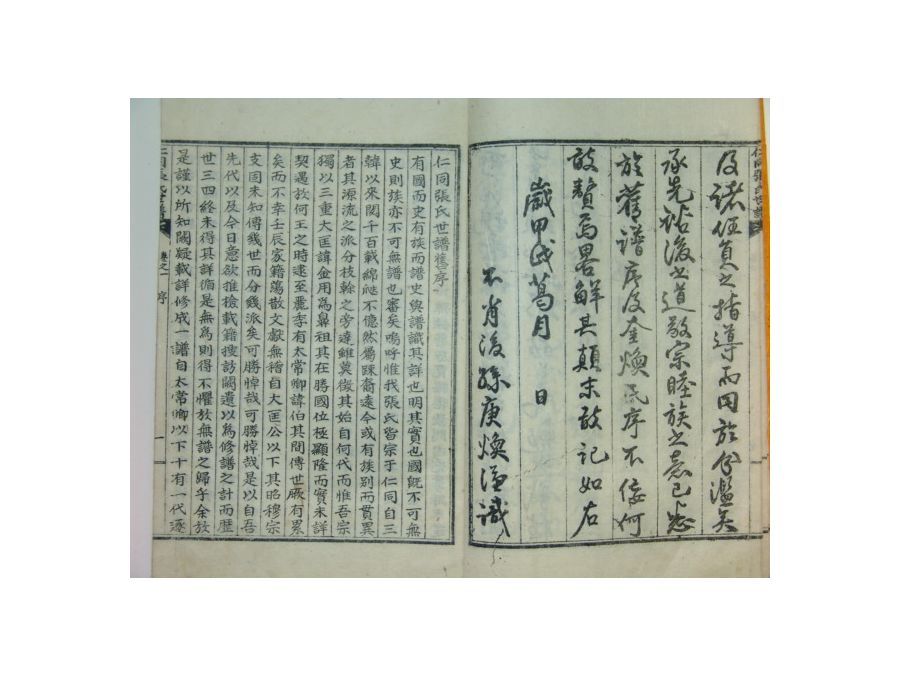 仁同張氏世譜
及諸任員之指導而因於余濫矣
承先詒後之道敦宗睦族之意已悉
於舊譜序後金煥氏序不佞何
敢贅焉畧鮮其顛末敢記如右
歲甲民葛月 日
不肖後孫庚煥謹識
仁同張氏世譜舊序
有國而史有族而譜史與譜識其詳也明其實也國旣不可無
史則族亦不可無譜也審矣嗚呼惟我張氏皆宗于仁同自三
韓以來閱千百載綿瓞不億然屬踈裔遠今或有族别而貫異
者其源流之派分枝榦之旁達雖莫徵其始自何代而惟吾宗
獨以三重大匡諱金用爲鼻祖其在勝國位極顯隆而實未詳
契遇故何王之時逮至麗季有太常卿諱伯其間傳世厥有累
矣而不幸壬辰家籍蕩散文獻無稽自大匡公以下其昭穆宗
支固未知傳幾世而分幾派矣可勝悼哉可勝悼哉是以自吾
先代以及今日意欲推檢載籍搜訪闕遺以爲修譜之計而歷
世三四終未得其詳循是無爲則得不懼放無譜之歸乎余放
是謹以所知闕疑載詳修成一譜自太常卿以下十有一代逐
仁同張氏世譜 卷之一 序 一